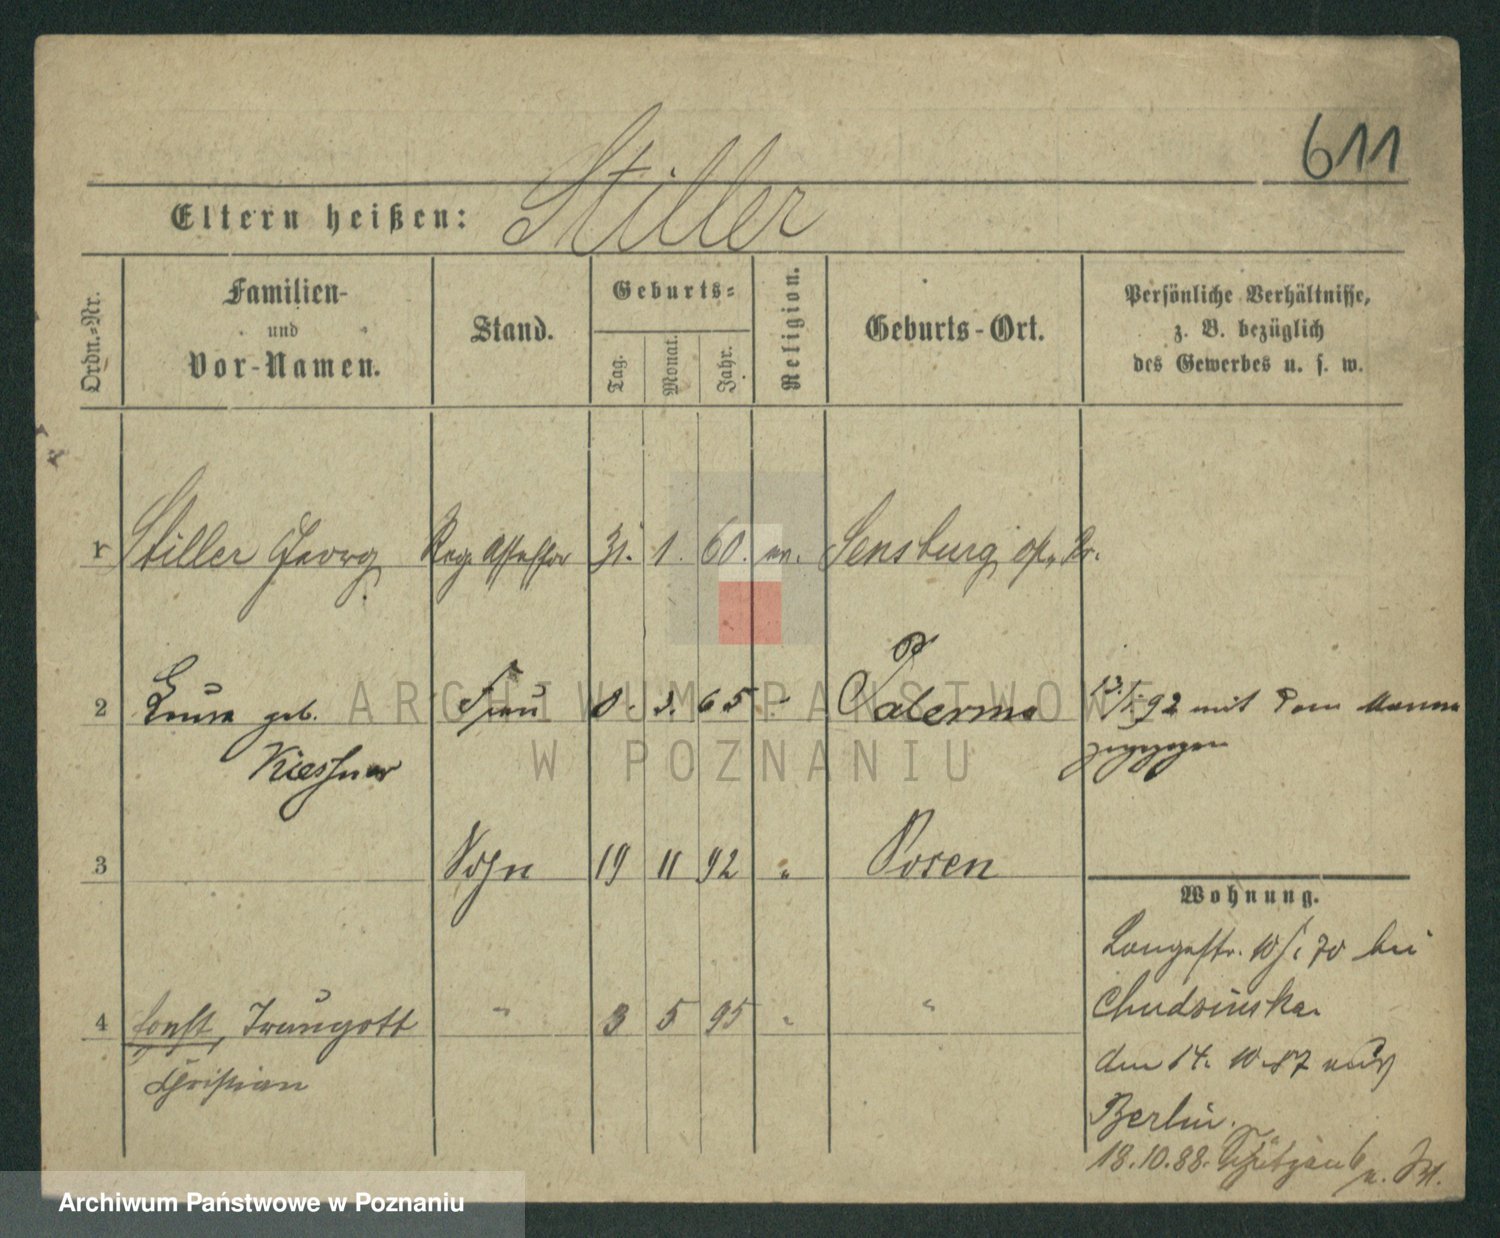 611
Eltern heißen: Stiller
Ordn.-Nr.
Familien-
und
Vor-Namen.
Stand.
Geburts-
Tag.
Monat.
Jahr.
Religion.
Geburts-Ort.
Persönliche Verhältnisse,
z. B. bezüglich
des Gewerbes u. s. w.
1 Stiller Georg Reg. Assessor 31. 1. 60. ev. Sensburg
2 geb. Frau 8. 3. 65 " Palermo 92 mit dem Manne
zugezogen
3 Sohn 19 11 92 " Posen
Wohnung.
Langestr. 10 bei
Chudzinska.
4 Ernst, Traugott " 3 5 95 " "
Christian
den 14. 10. 87 nach
Berlin.
18.10.88. Schützenstr
ARCHIWUM PAŃSTWOWE
W POZNANIU
Archiwum Państwowe w Poznaniu